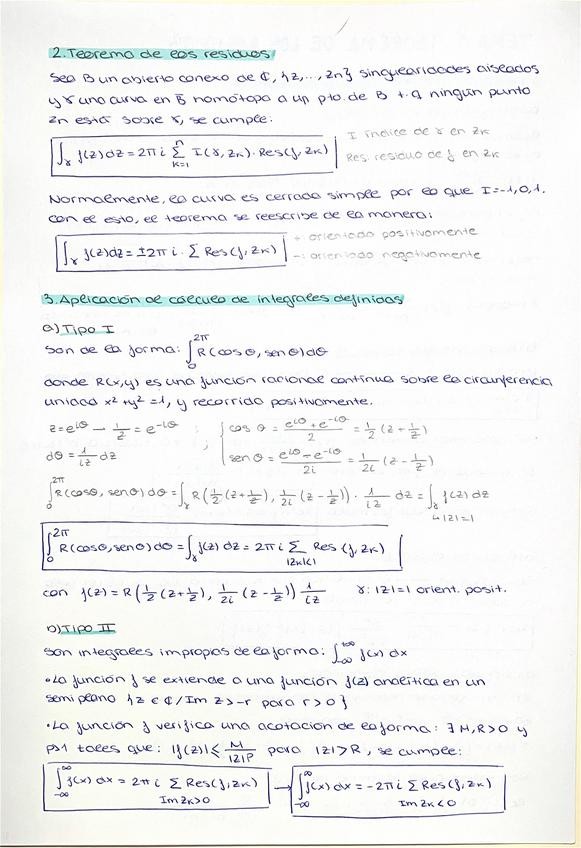 2. Teorema de los residuos
Sea B un abierto conexo de ₵, {z, ..., zn} singularidades aisladas
y γ una curva en B homótopa a un pto. de B t.q ningún punto
zn está sobre γ, se cumple:
∫γ f(z)dz = 2π i Σ(k=1, n) I(γ, zk) · Res(f, zk)
I índice de γ en zk
Res. residuo de f en zk
Normalmente, la curva es cerrada simple por lo que I=-1,0,1.
Con el esto, el teorema se reescribe de la manera:
∫γ f(z)dz = ±2π i · Σ Res(f, zk)
+: orientado positivamente
-: orientado negativamente
3. Aplicación al cálculo de integrales definidas
a) Tipo I
Son de la forma: ∫₀^2π R(cos θ, sen θ)dθ
donde R(x,y) es una función racional continua sobre la circunferencia
unidad x² + y² = 1, y recorrido positivamente.
z = e^iθ — 1/z = e^-iθ ; { cos θ = (e^iθ + e^-iθ)/2 = 1/2 (z + 1/z)
dθ = 1/iz dz sen θ = (e^iθ - e^-iθ)/2i = 1/2i (z - 1/z)
∫₀^2π R(cosθ, senθ) dθ = ∫γ R(1/2(z+1/z), 1/2i (z - 1/z)) · 1/iz dz = ∫γ f(z) dz
↳ |z|=1
∫₀^2π R(cosθ, senθ) dθ = ∫γ f(z) dz = 2π i Σ(|zk|<1) Res (f, zk)
con f(z) = R(1/2(z+1/z), 1/2i (z - 1/z)) 1/iz γ: |z|=1 orient. posit.
b) Tipo II
Son integrales impropias de la forma: ∫₋∞^∞ f(x) dx
• La función f se extiende a una función f(z) analítica en un
semiplano {z ∈ ₵ / Im z > -r para r > 0}
• La función f verifica una acotación de la forma: ∃ M, R>0 y
p>1 tales que: |f(z)| ≤ M/|z|^p para |z|>R, se cumple:
∫₋∞^∞ f(x) dx = 2π i Σ(Im zk>0) Res(f, zk) → ∫₋∞^∞ f(x) dx = -2π i Σ(Im zk<0) Res(f, zk)